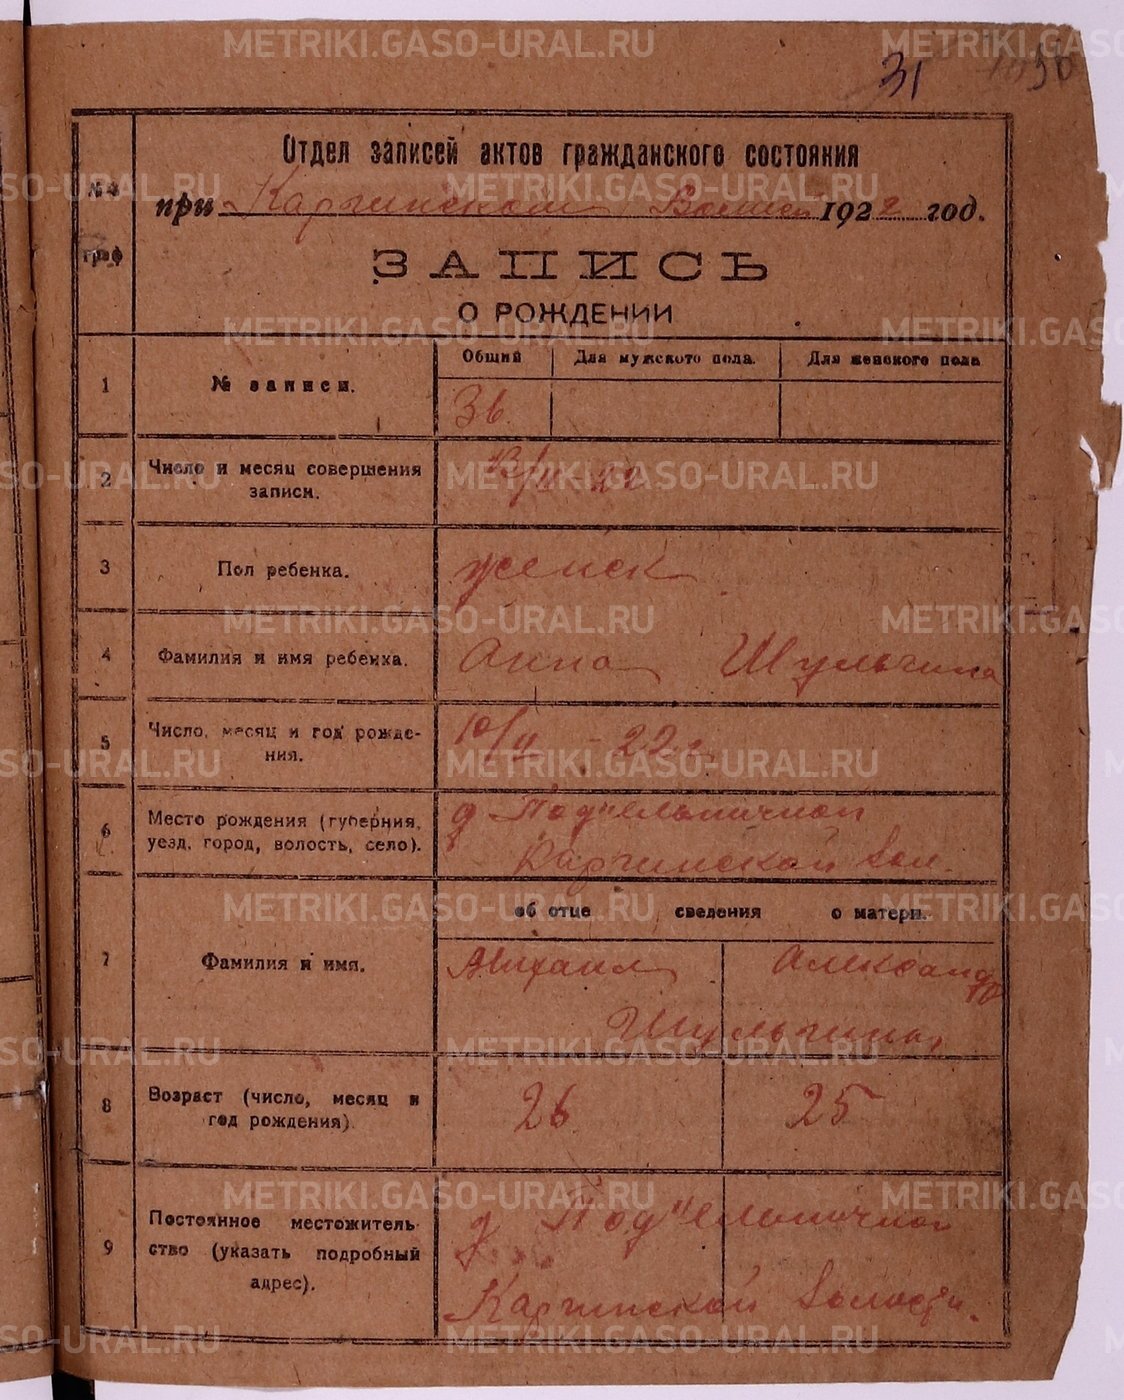 31
Отдел записей актов гражданского состояния
при Каргинском 1922 год.
№№
граф
ЗАПИСЬ
О РОЖДЕНИИ
1 № записи. Общий Для мужского пола. Для женского пола
36
2 Число и месяц совершения
записи.
3 Пол ребенка. женск
4 Фамилия и имя ребенка. Анна Шульгина
5 Число, месяц и год рожде-
ния. 10/II - 22 г
6 Место рождения (губерния,
уезд, город, волость, село).
д
Каргинской вол.
об отце сведения о матери.
7 Фамилия и имя. Михаил Александра
Шульгины
8 Возраст (число, месяц и
год рождения). 26 25
9 Постоянное местожитель-
ство (указать подробный
адрес).
д
Каргинской волости.
METRIKI.GASO-URAL.RU